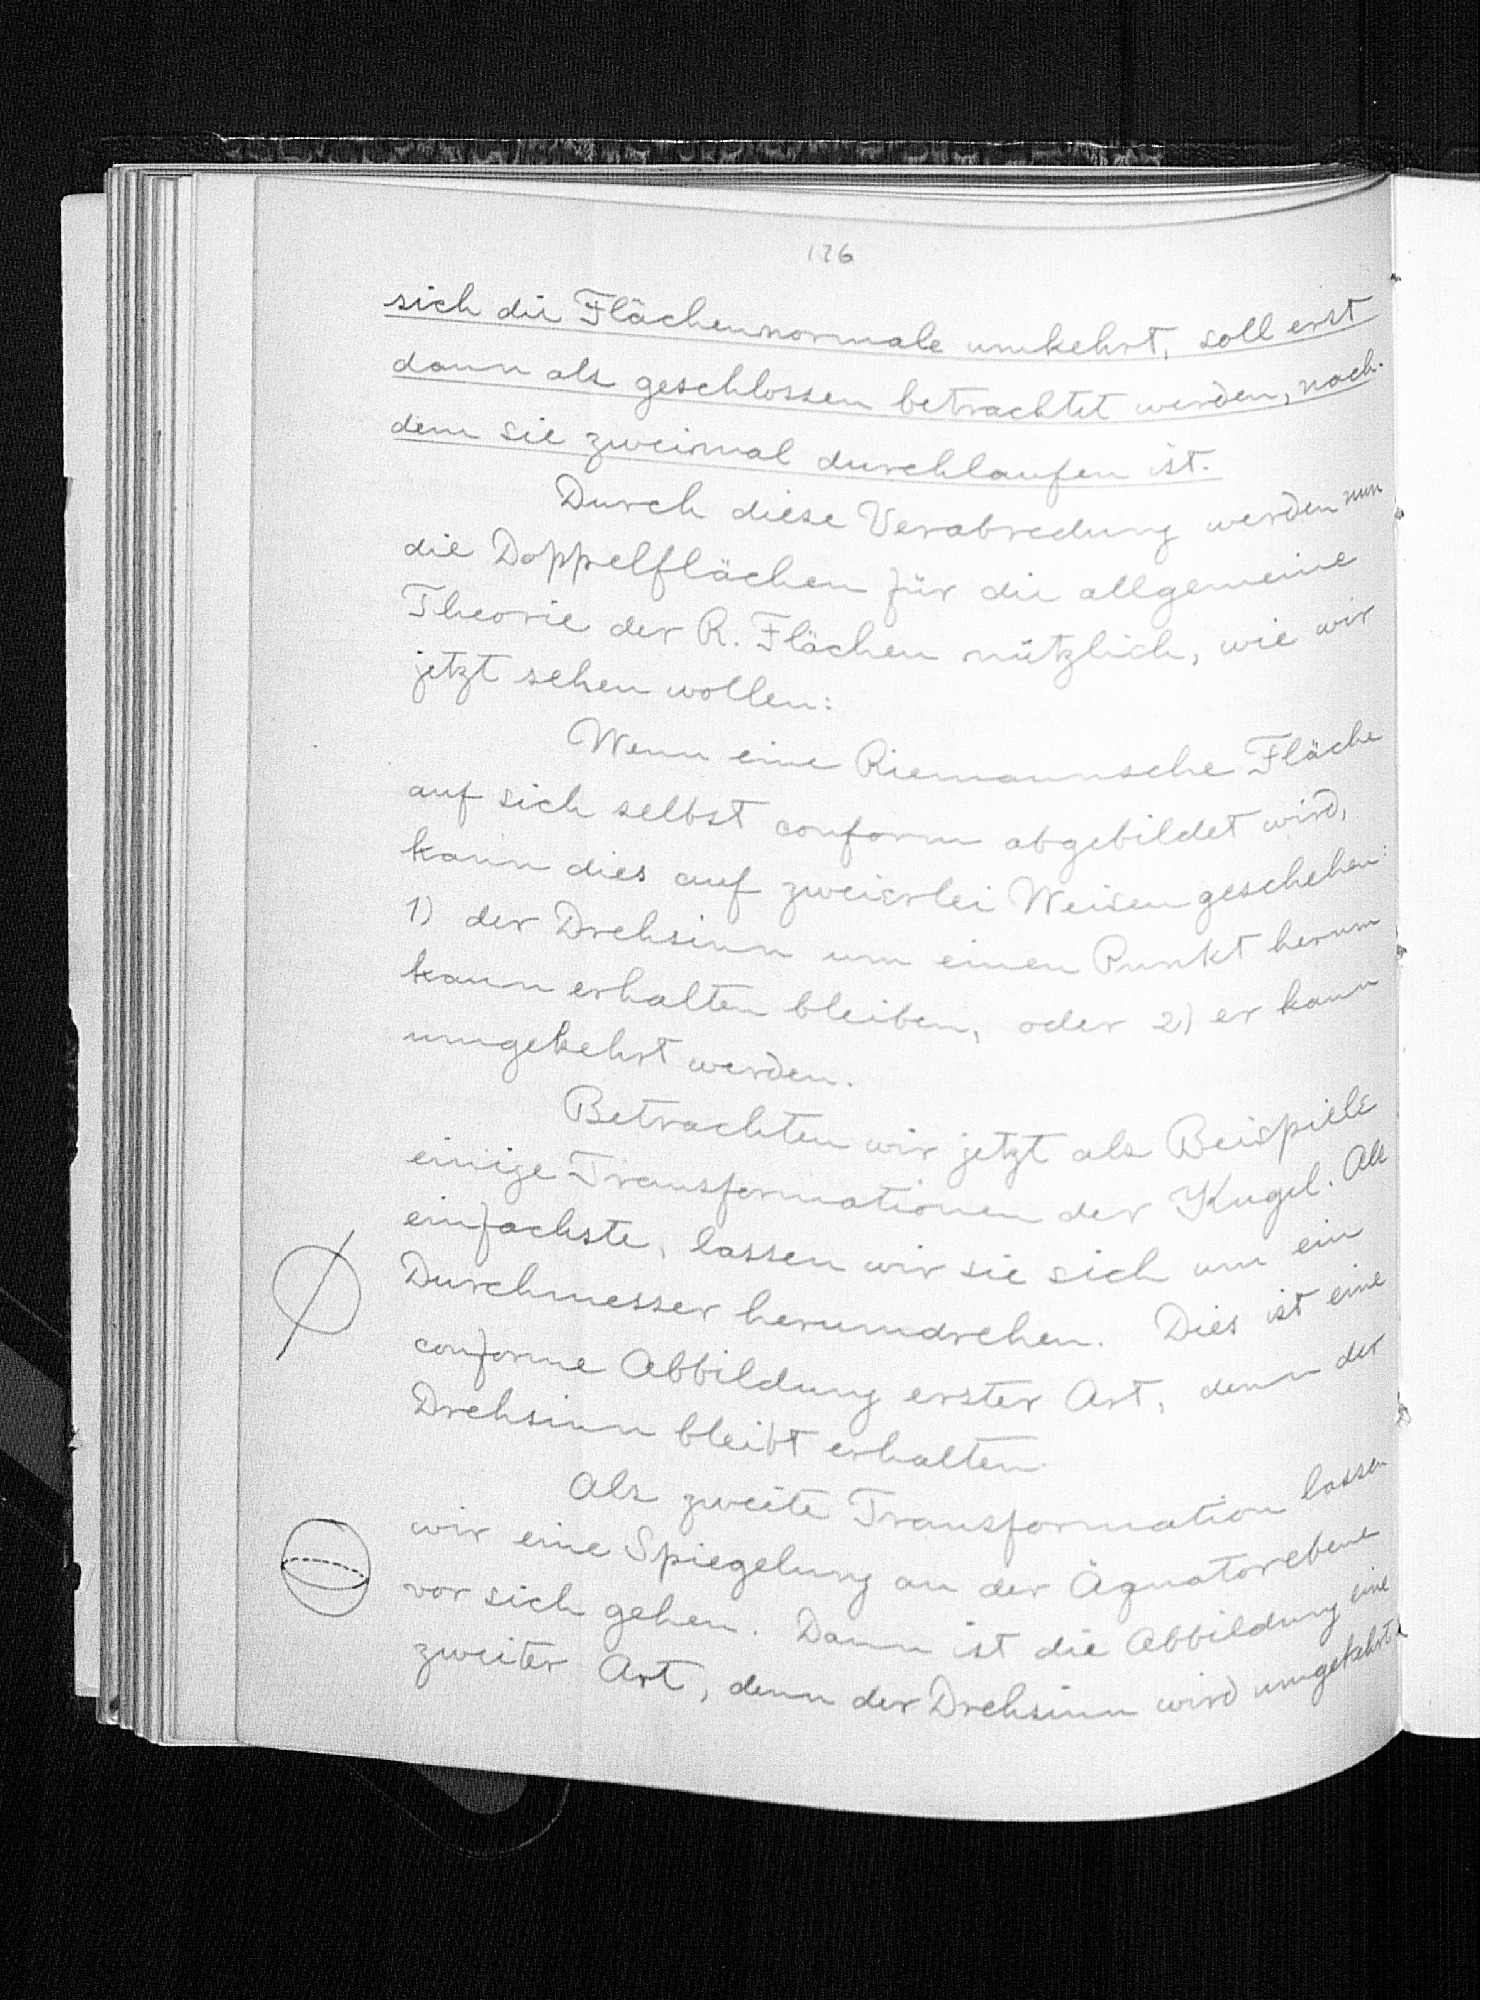 126
sich die Flächennormale umkehrt, soll erst
dann als geschlossen betrachtet werden, nach-
dem sie zweimal durchlaufen ist.
Durch diese Verabredung werden nun
die Doppelflächen für die allgemeine
Theorie der R. Flächen nützlich, wie wir
jetzt sehen wollen:
Wenn eine Riemannsche Fläche
auf sich selbst conform abgebildet wird,
kann dies auf zweierlei Weisen geschehen:
1) der Drehsinn um einen Punkt herum
kann erhalten bleiben, oder 2) er kann
umgekehrt werden.
Betrachten wir jetzt als Beispiele
einige Transformationen der Kugel. Als
einfachste, lassen wir sie sich um ein
Durchmesser herumdrehen. Dies ist eine
conforme Abbildung erster Art, denn der
Drehsinn bleibt erhalten.
Als zweite Transformation lassen
wir eine Spiegelung an der Äquatorebene
vor sich gehen. Dann ist die Abbildung eine
zweiter Art, denn der Drehsinn wird umgekehrt.